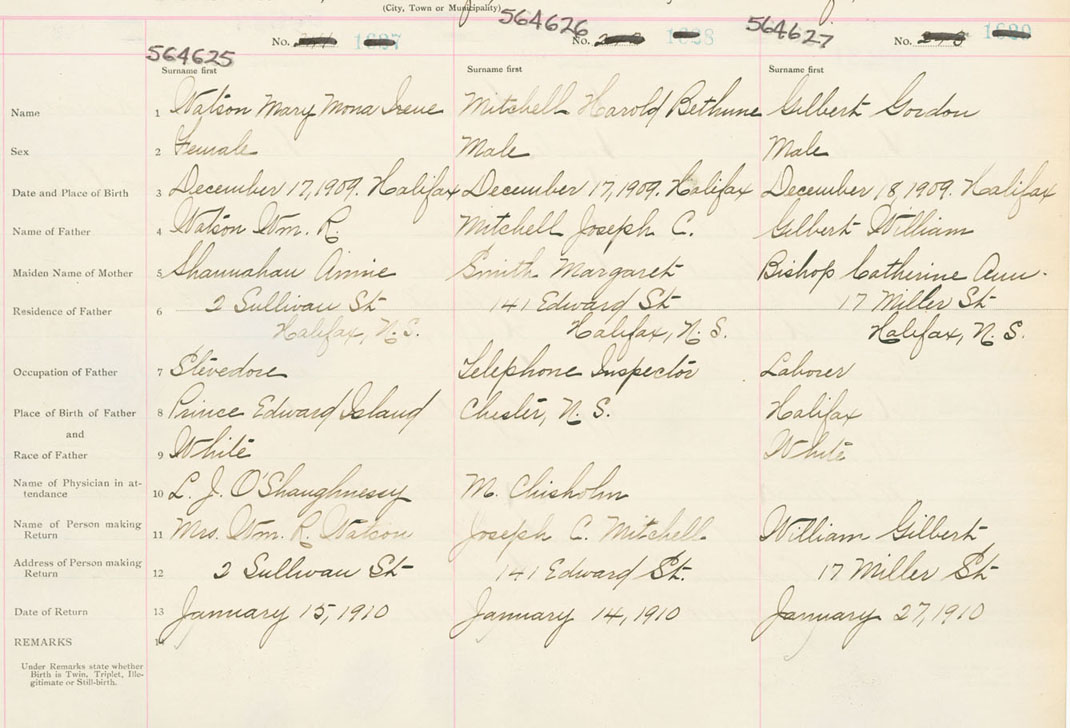 (City, Town or Municipality)
564625 564626 564627
No. 1627 No. 1628 No. 1629
Surname first Surname first Surname first
Name 1 Watson Mary Mona Irene Mitchell Harold Bethune Gilbert Gordon
Sex 2 Female Male Male
Date and Place of Birth 3 December 17, 1909. Halifax December 17, 1909. Halifax December 18 1909. Halifax
Name of Father 4 Watson Wm. R. Mitchell Joseph C. Gilbert William
Maiden Name of Mother 5 Shannahan Annie Smith Margaret Bishop Catherine Ann.
Residence of Father 6 2 Sullivan St 141 Edward St 17 Miller St
Halifax, N.S. Halifax, N.S. Halifax, N.S.
Occupation of Father 7 Stevedore Telephone Inspector Laborer
Place of Birth of Father 8 Prince Edward Island Chester, N.S. Halifax
and
Race of Father 9 White White
Name of Physician in at-
tendance 10 L. J. O'Shaughnessy M. Chisholm
Name of Person making
Return 11 Mrs. Wm. R. Watson Joseph C. Mitchell William Gilbert
Address of Person making
Return 12 2 Sullivan St 141 Edward St. 17 Miller St
Date of Return 13 January 15, 1910 January 14, 1910 January 27, 1910
REMARKS 14
Under Remarks state whether
Birth is Twin, Triplet, Ille-
gitimate or Still-birth.